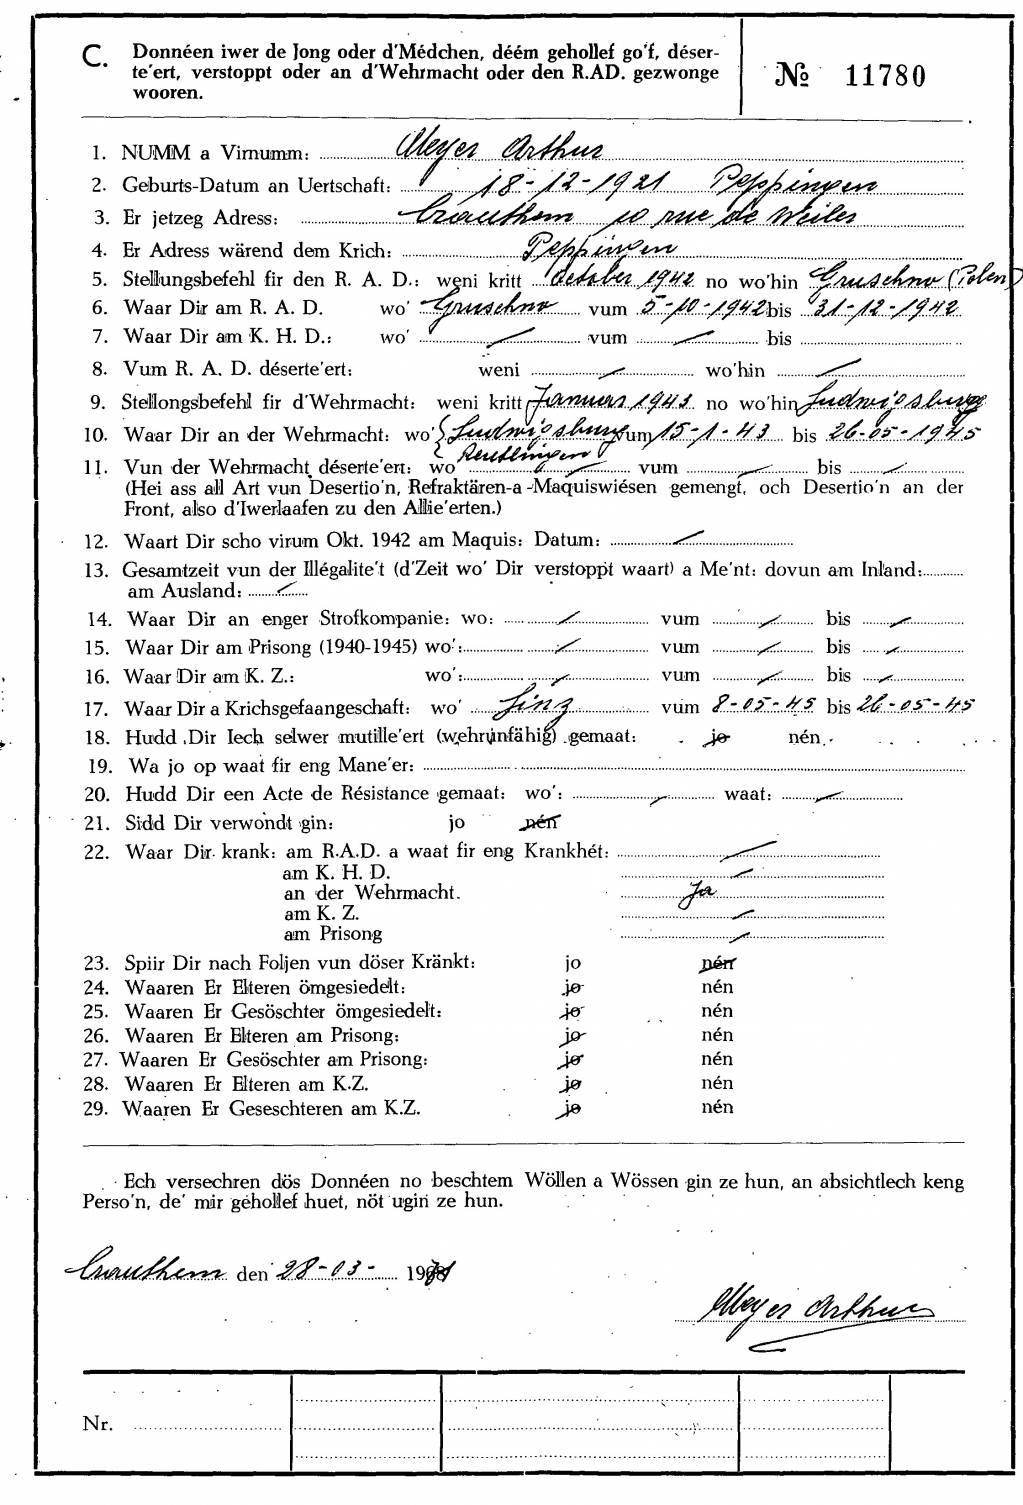 C. Donnéen iwer de Jong oder d'Médchen, déém gehollef go'f, déser-
te'ert, verstoppt oder an d'Wehrmacht oder den R.AD. gezwonge
wooren.
№ 11780
1. NUMM a Virnumm: Meyer Arthur
2. Geburts-Datum an Uertschaft: 18-12-1921 Peppingen
3. Er jetzeg Adress: Crauthem 10 rue de Weiler
4. Er Adress wärend dem Krich: Peppingen
5. Stellungsbefehl fir den R. A. D.: weni kritt October 1942 no wo'hin Gruschno (Polen)
6. Waar Dir am R. A. D. wo' Gruschno vum 5-10-1942 bis 31-12-1942
7. Waar Dir am K. H. D.: wo' / vum / bis
8. Vum R. A. D. déserte'ert: weni / wo'hin /
9. Stellongsbefehl fir d'Wehrmacht: weni kritt Januar 1943 no wo'hin Ludwigsburg
10. Waar Dir an der Wehrmacht: wo' Ludwigsburg vum 15-1-43 bis 26-05-1945
Reutlingen
11. Vun der Wehrmacht déserte'ert: wo' / vum / bis /
(Hei ass all Art vun Desertio'n, Refraktären-a-Maquiswiésen gemengt, och Desertio'n an der
Front, also d'Iwerlaafen zu den Allie'erten.)
12. Waart Dir scho virum Okt. 1942 am Maquis: Datum: /
13. Gesamtzeit vun der Illégalite't (d'Zeit wo' Dir verstoppt waart) a Me'nt: dovun am Inland:
am Ausland: /
14. Waar Dir an enger Strofkompanie: wo: / vum / bis /
15. Waar Dir am Prisong (1940-1945) wo': / vum / bis /
16. Waar Dir am K. Z.: wo': / vum / bis /
17. Waar Dir a Krichsgefaangeschaft: wo' Linz vum 8-05-45 bis 26-05-45
18. Hudd Dir Iech selwer mutille'ert (wehrunfähig) gemaat: jo nén
19. Wa jo op waat fir eng Mane'er:
20. Hudd Dir een Acte de Résistance gemaat: wo': / waat: /
21. Sidd Dir verwondt gin: jo nén
22. Waar Dir krank: am R.A.D. a waat fir eng Krankhét: /
am K. H. D. /
an der Wehrmacht. Ja
am K. Z. /
am Prisong /
23. Spiir Dir nach Foljen vun döser Kränkt: jo nén
24. Waaren Er Elteren ömgesiedelt: jo nén
25. Waaren Er Gesöschter ömgesiedelt: jo nén
26. Waaren Er Elteren am Prisong: jo nén
27. Waaren Er Gesöschter am Prisong: jo nén
28. Waaren Er Elteren am K.Z. jo nén
29. Waaren Er Geseschteren am K.Z. jo nén
Ech versechren dös Donnéen no beschtem Wöllen a Wössen gin ze hun, an absichtlech keng
Perso'n, de' mir gehollef huet, nöt ugin ze hun.
Crauthem den 28-03- 19
Meyer Arthur
Nr.